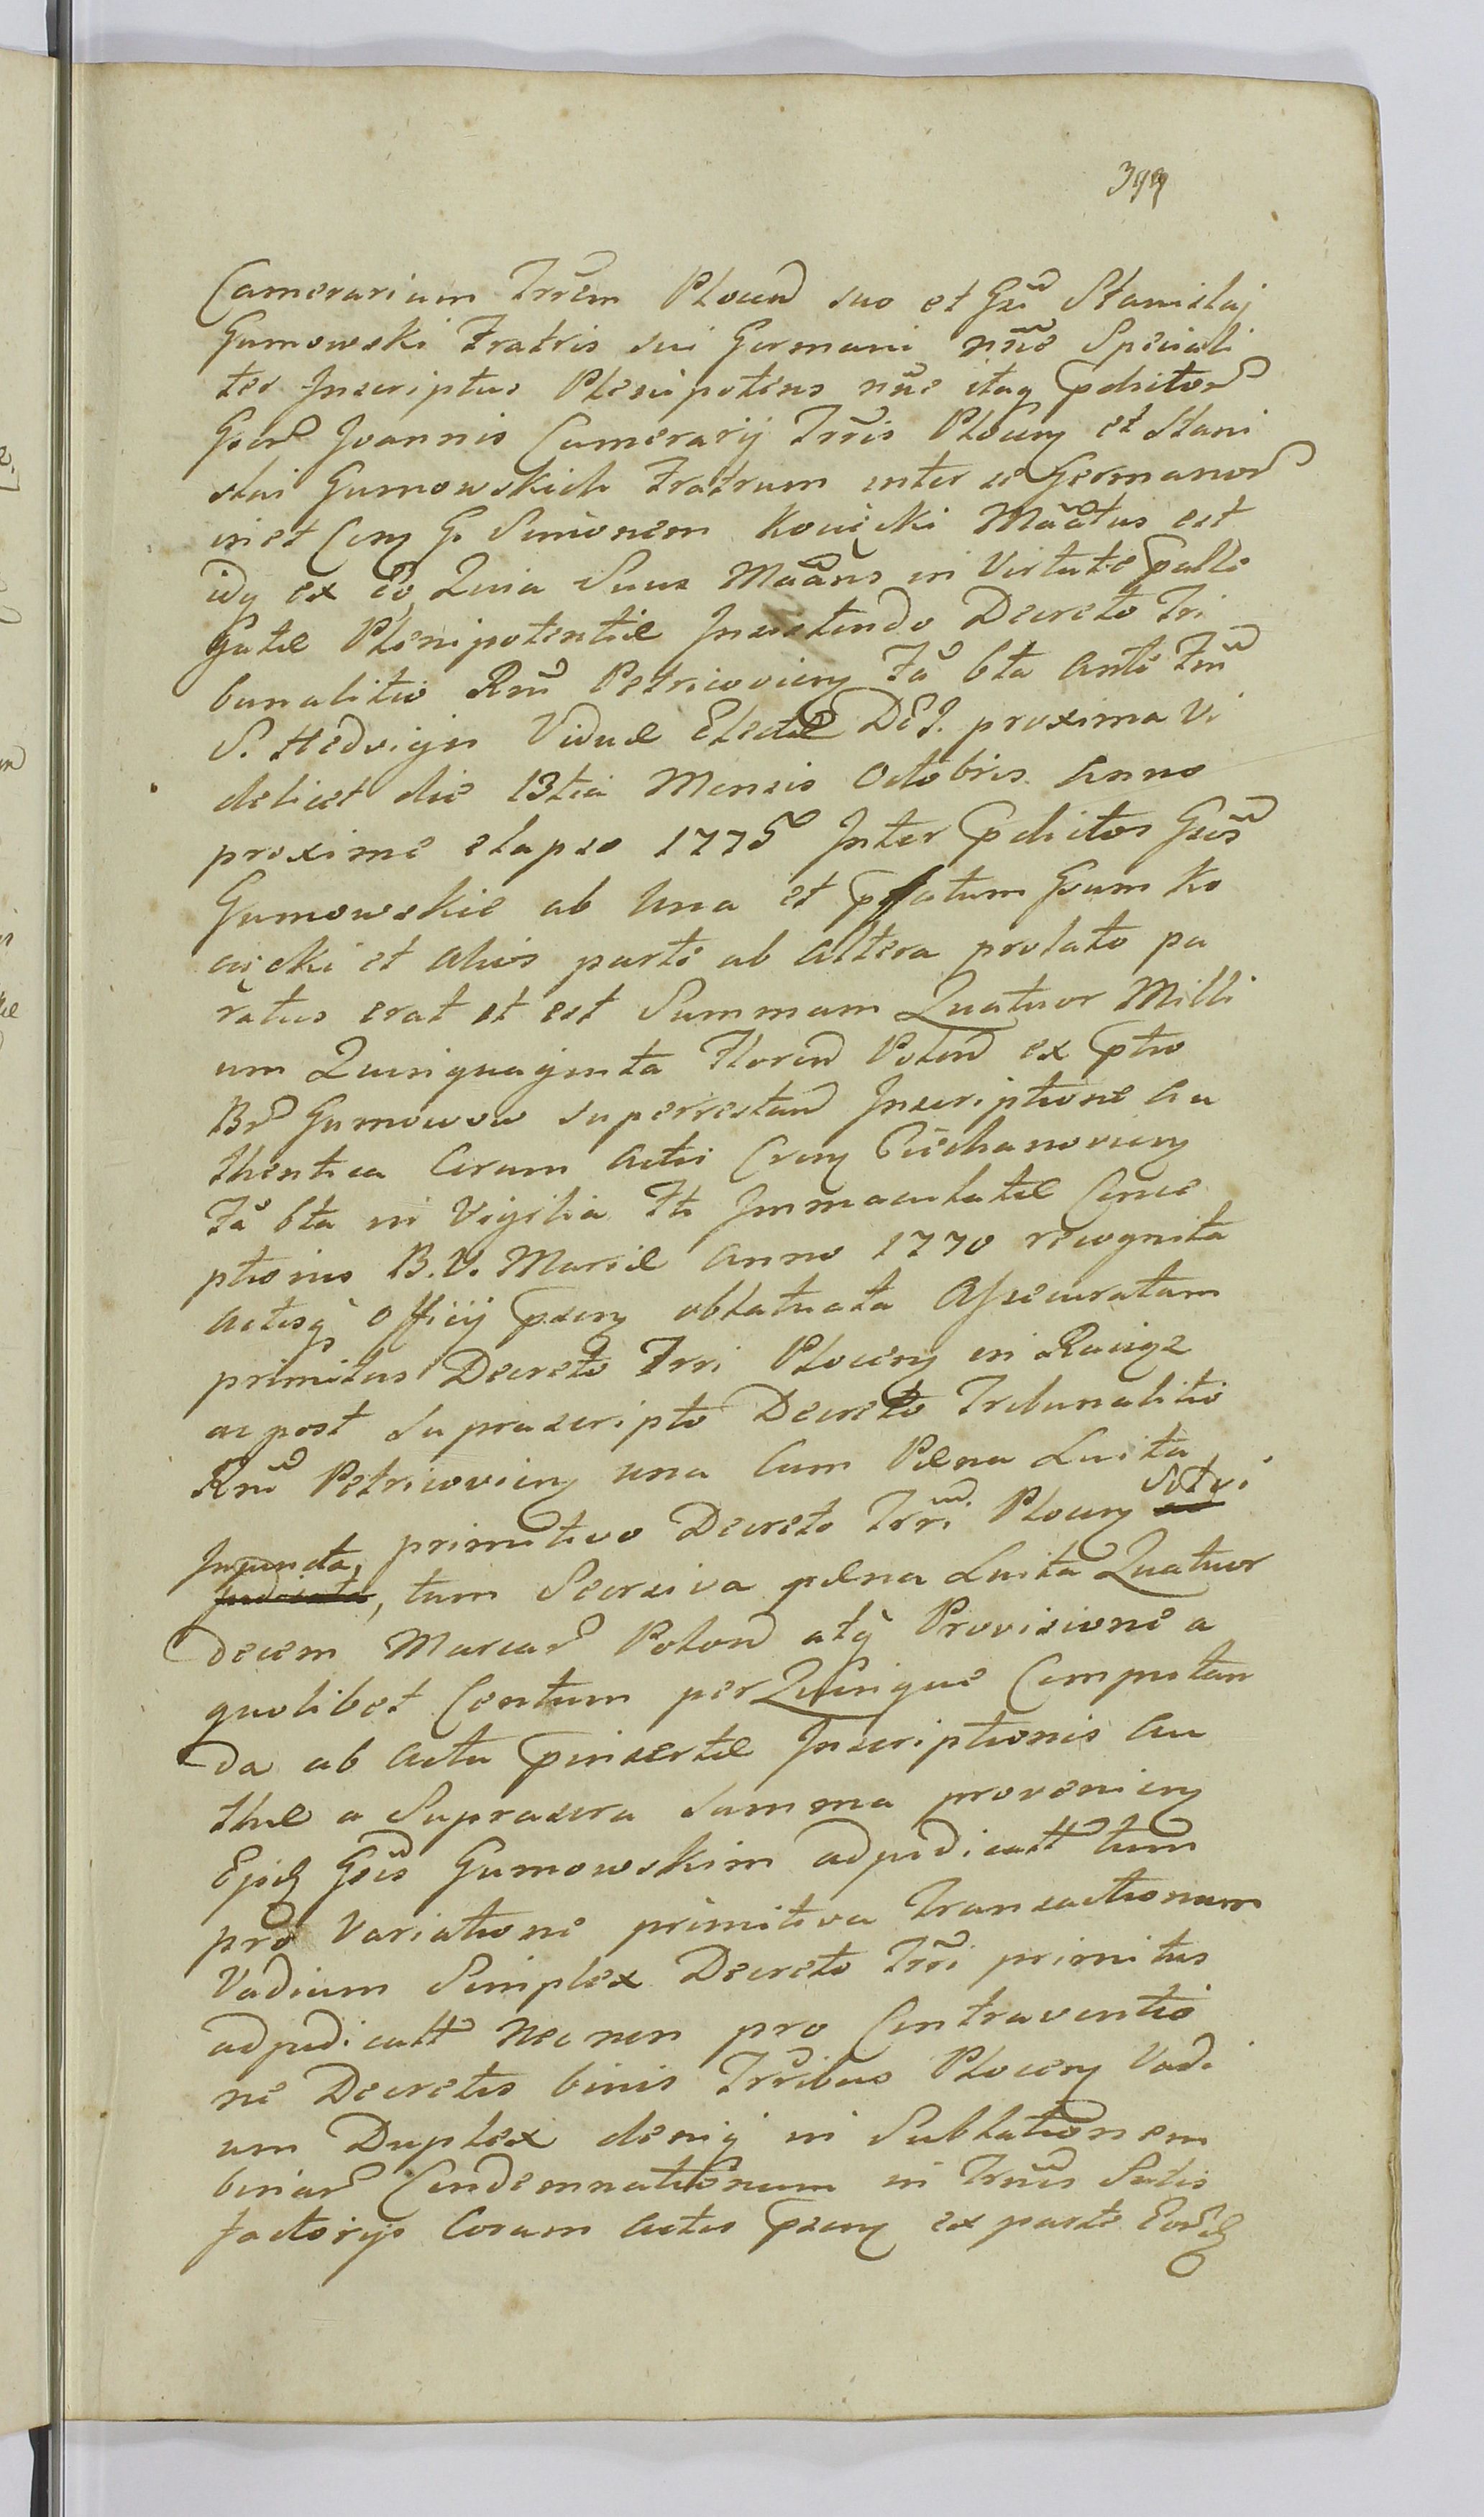 399
Camerarium Trrem Plocen suo et Gsi Stanislai
Gumowski Fratris sui Germani nne Speciali
ter Inscriptus Plenipotens nne itaq pdictor
Gsor Joannis Camerarij Trris Plocen et Stani
slai Gumowskich Fratrum inter se Germanor
in et Con G. Simonem Kocięcki Maatus est
idq ex Eo, Quia Suus Maans in Virtute palle
gatæ Plenipotentiæ Insistendo Decreto Tri
bunalitio Rni Petricovien Fa 6ta Ante Ftm
S. Hedvigis Viduæ Electæ DEI. proxima Vi
delicet die 13tia Mensis Octobris Anno
proxime elapso 1775 Inter pdictos Gsos
Gumowskie ab Una et pfatum Gsum Ko
cięcki et alios parte ab altera prolato pa
ratus erat et est Summam Quatuor Milli
um Quinquaginta Floren Polon ex ptio
Br Gumowow superrestan Inscriptione Au
thentica Coram Actis Cren Ciechanovien
Fa 6ta in Vigilia Fti Immaculatæ Conce
ptionis B. V. Mariæ Anno 1770 recognita
Actisq Officij psen oblatuata Assecuratam
primitus Decreto Trri Plocen in Raciąz
ac post Suprascripto Decreto Tribunalitio
Rni Petricovien una Cum Pæna Luita
Injuncta, primitivo Decreto Trri Plocen Solvi
Judicata, tum Seorsiva pæna Luita Quatuor
decem Marcar Polon atq Provisione a
quolibet Centum per Quinque Computan
da ab Actu pinsertæ Inscriptionis Au
thæ a Suprascra Summa provenien
Epid Gsis Gumowskim adjudicatt tum
pro Variatione primitiva Transactionum
Vadium Simplex Decreto Trri primitus
adjudicatt Nec non pro Contraventio
ne Decretis binis Trribus Plocen Vadi
um Duplex deniq in Sublationem
binar Condemnationum in Trmis Satis
factorijs Coram Actis psen ex parte Eord